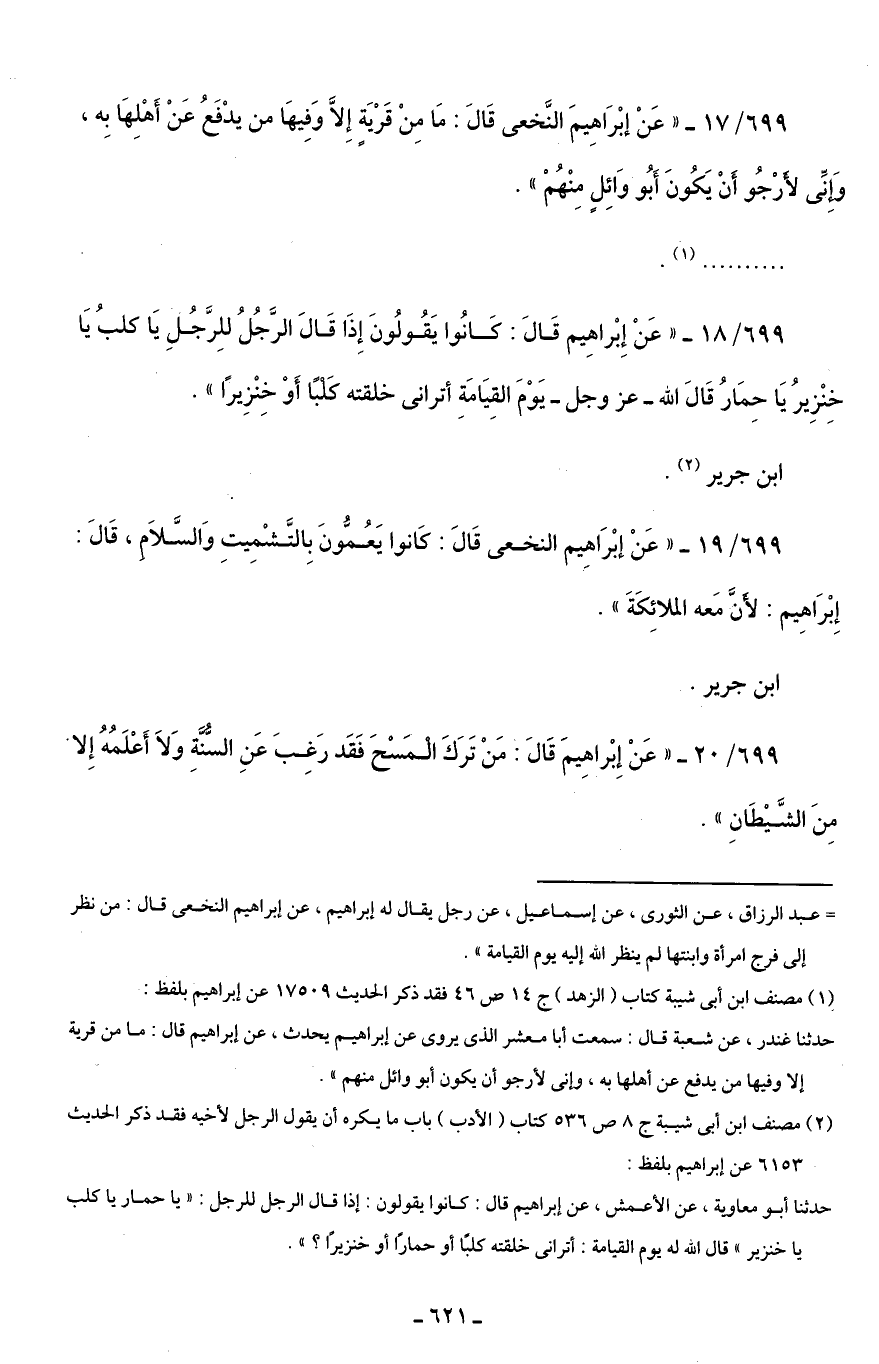 ٦٩٩/ ١٧ ـ « عَنْ إِبْرَاهِيمَ النَّخعى قَالَ : مَا مِنْ قَرْيَةٍ إِلاَّ وَفِيهَا من يدْفَعُ عَنْ أَهْلِهَا بِه ،
وَإِنِّى لأَرْجُو أَنْ يَكُونَ أَبُو وَائِلٍ مِنْهُمْ » .
.......... (١) .
٦٩٩/ ١٨ ـ « عَنْ إِبْرَاهِيم قَـالَ : كَــانُوا يَقُـولُونَ إِذَا قَـالَ الرَّجُلُ للرَّجُـلِ يَا كلبُ يَا
خِنْزِيرُ يَا حِمَارُ قَالَ الله ـ عز وجل ـ يَوْمَ القِيَامَةِ أترانى خلقته كَلْبًا أَوْ خِنْزِيرًا » .
ابن جرير (٢) .
٦٩٩/ ١٩ ـ « عَنْ إِبْرَاهِيم النخـعى قَالَ : كَانوا يَعُـمُّونَ بِالتَّـشْمِيتِ وَالسَّـلاَمِ ، قَالَ :
إِبْرَاهِيم : لأَنَّ مَعه الملائِكَةَ » .
ابن جرير .
٦٩٩/ ٢٠ ـ « عَنْ إِبْرَاهِيمَ قَالَ : مَنْ تَرَكَ الْـمَسْحَ فَقَد رَغِـبَ عَنِ السُّنَّةِ وَلاَ أَعْلَمُهُ إلا
مِنَ الشَّـيْطَانِ » .
= عـبد الرزاق ، عـن الثورى ، عن إسـمـاعـيل ، عن رجل يقـال له إبراهيم ، عن إبراهيم النخـعى قـال : من نظر
إلى فرج امرأة وابنتها لم ينظر الله إليه يوم القيامة » .
(١) مصنف ابن أبى شيبة كتاب ( الزهد ) ج ١٤ ص ٤٦ فقد ذكر الحديث ١٧٥٠٩ عن إبراهيم بلفظ :
حدثنا غندر ، عن شـعبة قـال : سمعت أبا مـعشر الذى يروى عن إبراهيـم يحدث ، عن إبراهيم قال : مـا من قرية
إلا وفيها من يدفع عن أهلها به ، وإنى لأرجو أن يكون أبو وائل منهم » .
(٢) مصنف ابن أبى شيبـة ج ٨ ص ٥٣٦ كتاب ( الأدب ) باب ما يـكره أن يقول الرجل لأخيه فقـد ذكر الحديث
٦١٥٣ عن إبراهيم بلفظ :
حدثنا أبـو معاوية ، عن الأعـمش ، عن إبراهيم قال : كـانوا يقولون : إذا قـال الرجل للرجل : « يا حمـار يا كلب
يا خنزير » قال الله له يوم القيامة : أترانى خلقته كلبًا أو حمارًا أو خنزيرًا ؟ » .
ـ ٦٢١ ـ